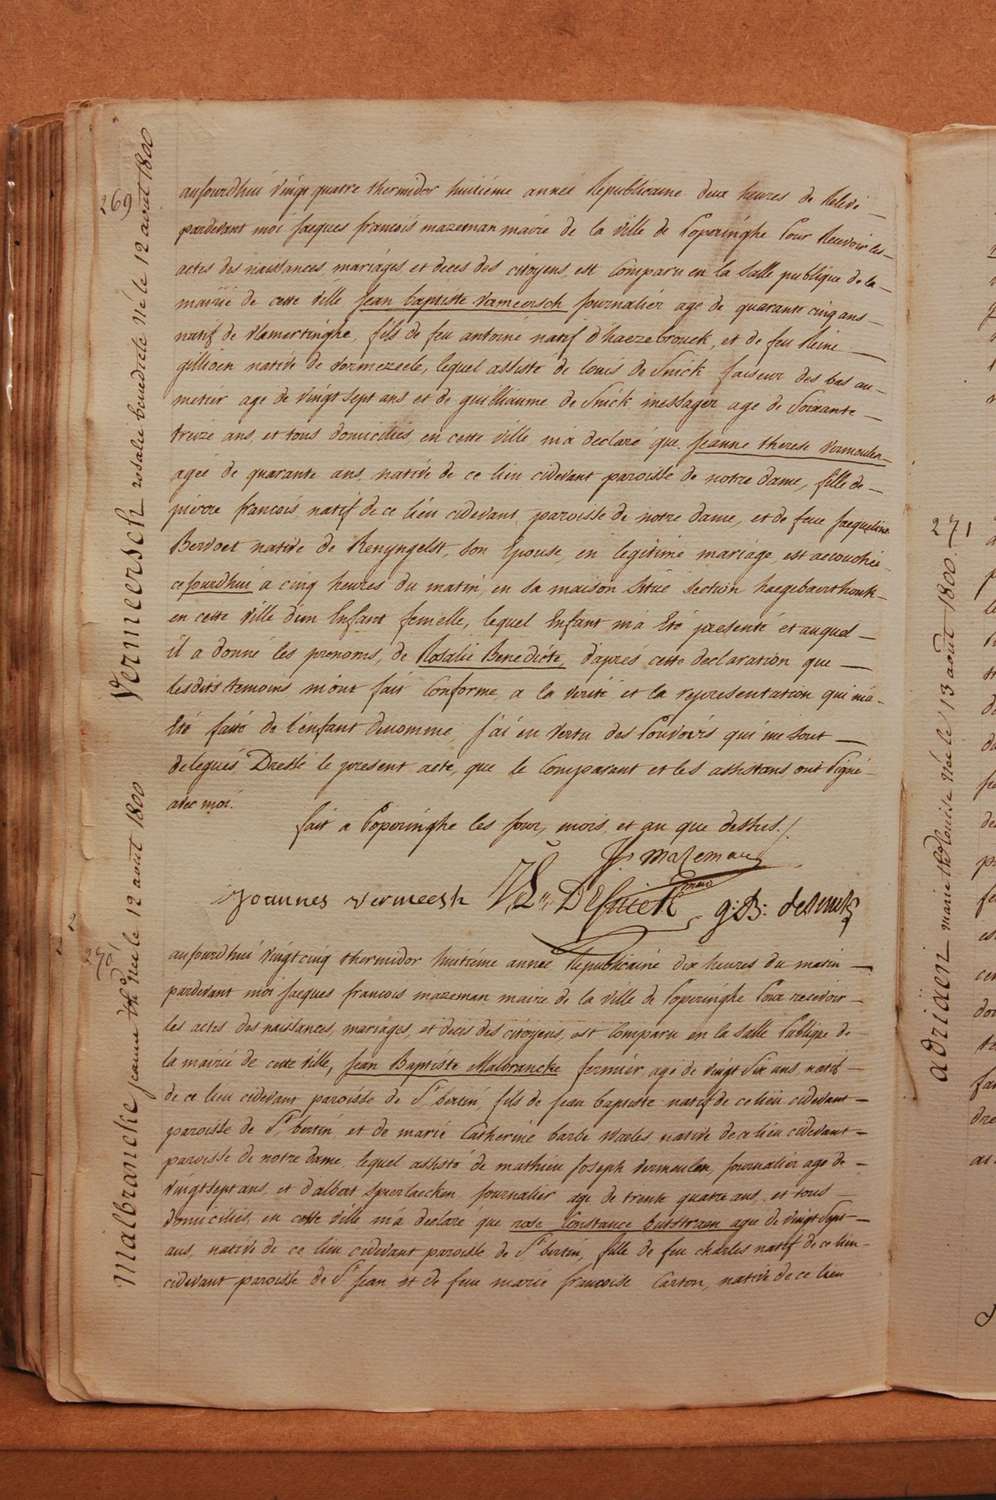 269
Vermeersch rosalie benedicte Née le 12 aout 1800
aujourdhui vingt quatre thermidor huitiéme année Republicaine deux heures de Relevé
pardevant moi Jacques francois mazeman maire de la ville de Poperinghe Pour Recevoir les
actes des naissances, mariages, et deces des citoyens, est Comparu en la Salle publique de la
mairie de cette ville Jean baptiste Vameersch journalier age de quarante cinq ans
natif de Vlamertinghe, fils de feu antoine natif d'haezebrouck, et de feu Reine
gillioen native de vormezeele, lequel assisté de louis de Snick faiseur des bas au
metier age de vingt sept ans et de guilliaume de Snick messager age de Soixante
treize ans, et tous domiciliés en cette ville m'a declaré que Jeanne therese Vermeulen
agée de quarante ans, native de ce lieu cidevant paroisse de notre dame, fille de
pierre francois natif de ce lieu cidevant paroisse de notre dame, et de feue Jacqueline
Berdoet native de Renyngelst, Son Epouse, en legitime mariage, est accouchée
cejourdhui a cinq heures du matin, en sa maison Situé Section haegebaerthouk
en cette ville d'un Enfant femelle, lequel Enfant m'a Eté presenté et auquel
il a donné les prenoms, de Rosalie Benedicte, d'aprés cette declaration que
lesdits temoins m'ont fait Conforme a la verité et la representation qui m'a
Eté faite de l'enfant denommé, J'ai en vertu des Pouvoirs qui me Sont
delegués, Dressé le present acte, que le Comparant et les assistans ont Signé
avec moi.
fait a Poperinghe les jour, mois, et an que dessus./.
J mazeman
Joannes vermeesh L: DeSnick g: B: desnick
270
Malbrancke jeanne thse Née le 12 aout 1800
aujourdhui vingt cinq thermidor huitiéme année Republicaine dix heures du matin
pardevant moi Jacques francois mazeman maire de la ville de Poperinghe Pour recevoir
les actes des naissances, mariages, et deces des citoyens, est Comparu en la Salle Publique de
la mairie de cette ville, Jean Baptiste Malbrancke fermier age de vingt Six ans, natif
de ce lieu cidevant paroisse de St bertin, fils de Jean baptiste natif de ce lieu cidevant
paroisse de St bertin, et de marie Catherine barbe native de ce lieu cidevant
paroisse de notre dame, lequel assisté de mathieu Joseph vermeulen, journalier age de
vingt sept ans, et d'albert journalier age de trente quatre ans, et tous
domiciliés, en cette ville m'a declaré que rose Constance butstraen agée de vingt sept
ans, native de ce lieu cidevant paroisse de St bertin, fille de feu charles natif de ce lieu
cidevant paroisse de St Jean et de feue marie francoise Carton, native de ce lieu
271
adriaen marie Née le 13 aout 1800